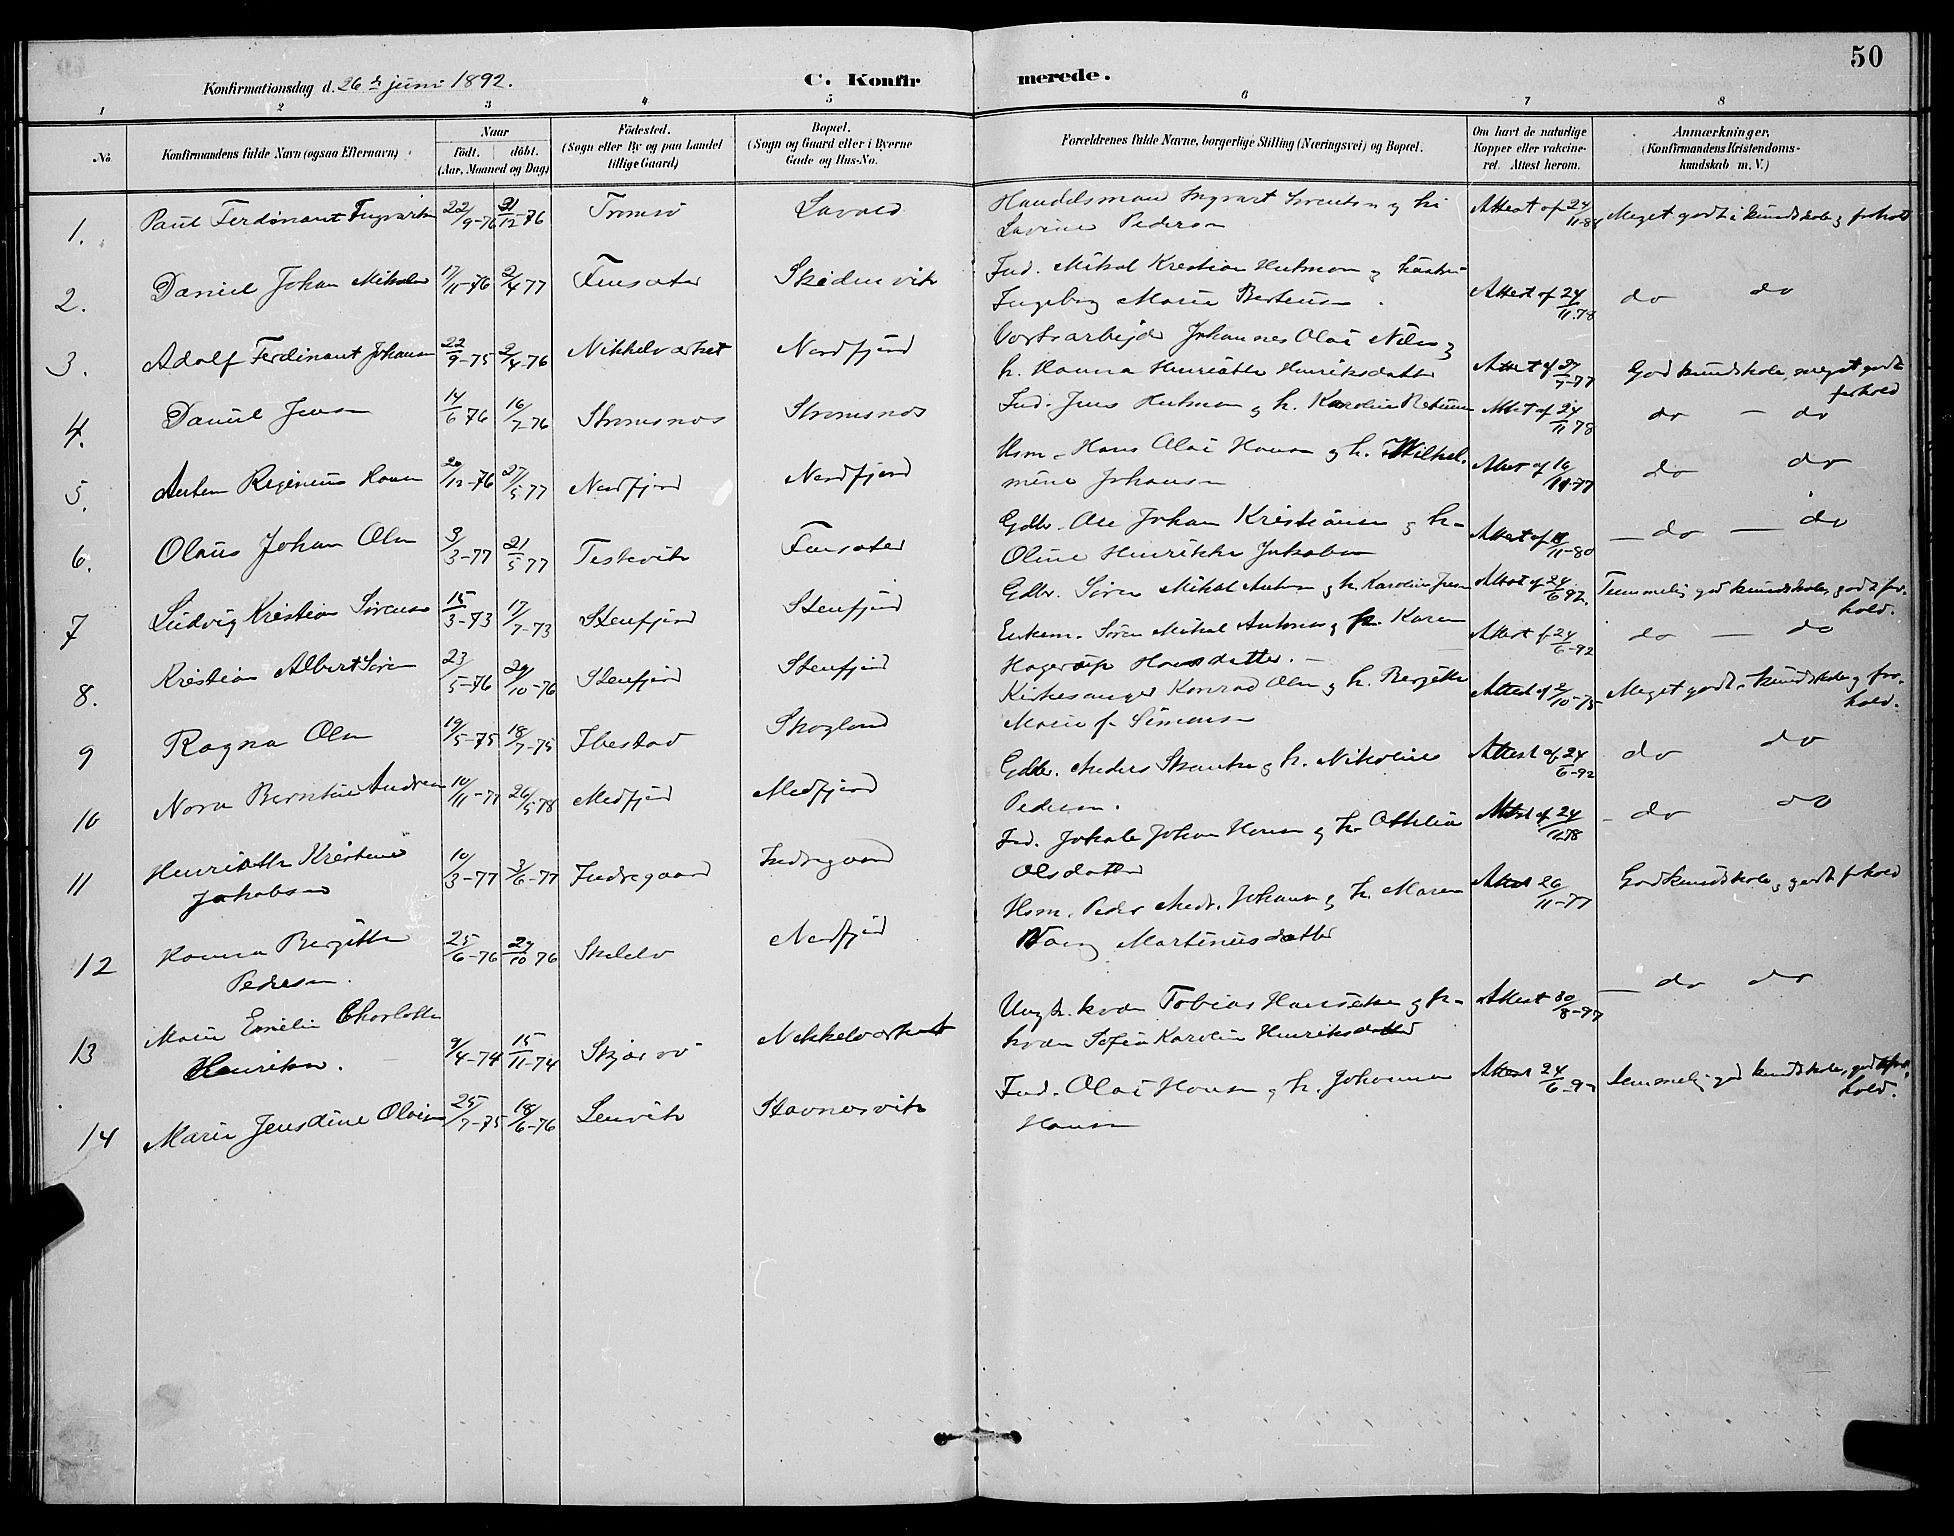 50
Konfirmationsdag d. 26 juni 1892.
C. Konfirmerede.
1 2 3 4 5 6 7 8
No.
Konfirmandens fulde Navn (ogsaa Efternavn)
Naar
födt. döbt.
(Aar, Maaned og Dag)
Födested.
(Sogn eller By og paa Landet
tillige Gaard)
Bopæl.
(Sogn og Gaard eller i Byerne
Gade og Hus-No.
Forældrenes fulde Navne, borgerlige Stilling (Næringsvei) og Bopæl.
Om havt de naturlige
Kopper eller vakcine-
ret. Attest herom.
Anmærkninger,
(Konfirmandens Kristendoms-
kundskab m. V.)
1. Paul Ferdinant 22/9-76 31/12-76 Tromsö
Handelsman Ingvart & h.
Lavine Pedersen
Attest af 24/11-84 Meget godt i kundskab & forhold
2. Daniel Johan 17/11-76 2/4 77 Finsæter Skadensvik
Ind. Mikal Kristian & hustru
Ingeborg Marie
Attest af 24/11-78 do do
3. Adolf Ferdinant Johansen 22/9-75 2/4-76 Nikkelværket Nordfjord
Johannes Olai
h. Hanna Henriette Henriksdatter
Attest af 27/7-77 God kundskab, meget godt
forhold
4. Daniel Jensen 14/6 76 16/7-76 Stromsnos Stromsnos
Ind. Jens & h. Karoline
Attest af 24/11 78 do - do
5. Anton Reginius Hansen 20/12-76 27/5 77 Nordfjord Nordfjord
Hsm. Hans Olai Hansen & h. Wilhel-
mine Johansen
77 do do
6. Olaus Johan Olsen 3/3-77 21/5 77 Teskevik Finsæter
Gdbr. Ole Johan Kristiansen & h.
Oline Henrikke Jakobsen
Attest af 11-80 do - do
7 Ludvig Kristian Sörensen 15/3-73 17/7-73 Stenfjord Stenfjord
Gdbr. Sören Mikal & h. Karoline
Attest af 24/6 92. Temmelig god kundskab, godt for-
hold.
8. Kristian Albert Sören 23/5-76 29/10-76 Stenfjord Stenfjord
Enkem. Sören Mikal & h. Karen
Hagerup Hansdatter.
Attest af 24/6-92 do - do
9 Ragna Olsen 19/5-75 18/7-75 Ibestad Skogland
Kirkesanger Konrad Olsen & h. Bergitte
Marie f. Simonsen
Attest af 2/10-75 Meget godt i kundskab & for-
hold.
10 Nora Berntine 10/11-77 26/5 78 Medfjord Medfjord
Gdbr. Anders & h. Nikoline
Pedersen.
Attest af 24/6-92 do do
11 Henriette Kristine
Jakobsen
10/3-77 3/6-77 Indregaard Indregaard
Ind. Johan Hansen & h. Othilia
Olsdatter
Attest af 24 do do
12 Hanna Bergitte
Pedersen.
25/6-76 29/10 76 Nordfjord
Hsm. Peder Johansen & h. Maren
Martinusdatter
Attest 26/11-77 God kundskab, godt forhold
13 Marie Emelie Charlotte
Henriksen.
9/4-74 15/11-74 Skjærvö Nikkelværket
Ungk. kvæn Tobias & p.
kvæn Sofia Karoline Henriksdatter
Attest 30/8-97 do do
14 Marie Jensdine Olaisen 25/7-75 18/6-76 Lenvik Stavnesvik
Ind. Olai Hansen & h. Johanna
Hansen
Attest 24/6-92 temmelig god kundskab, godt for-
hold.